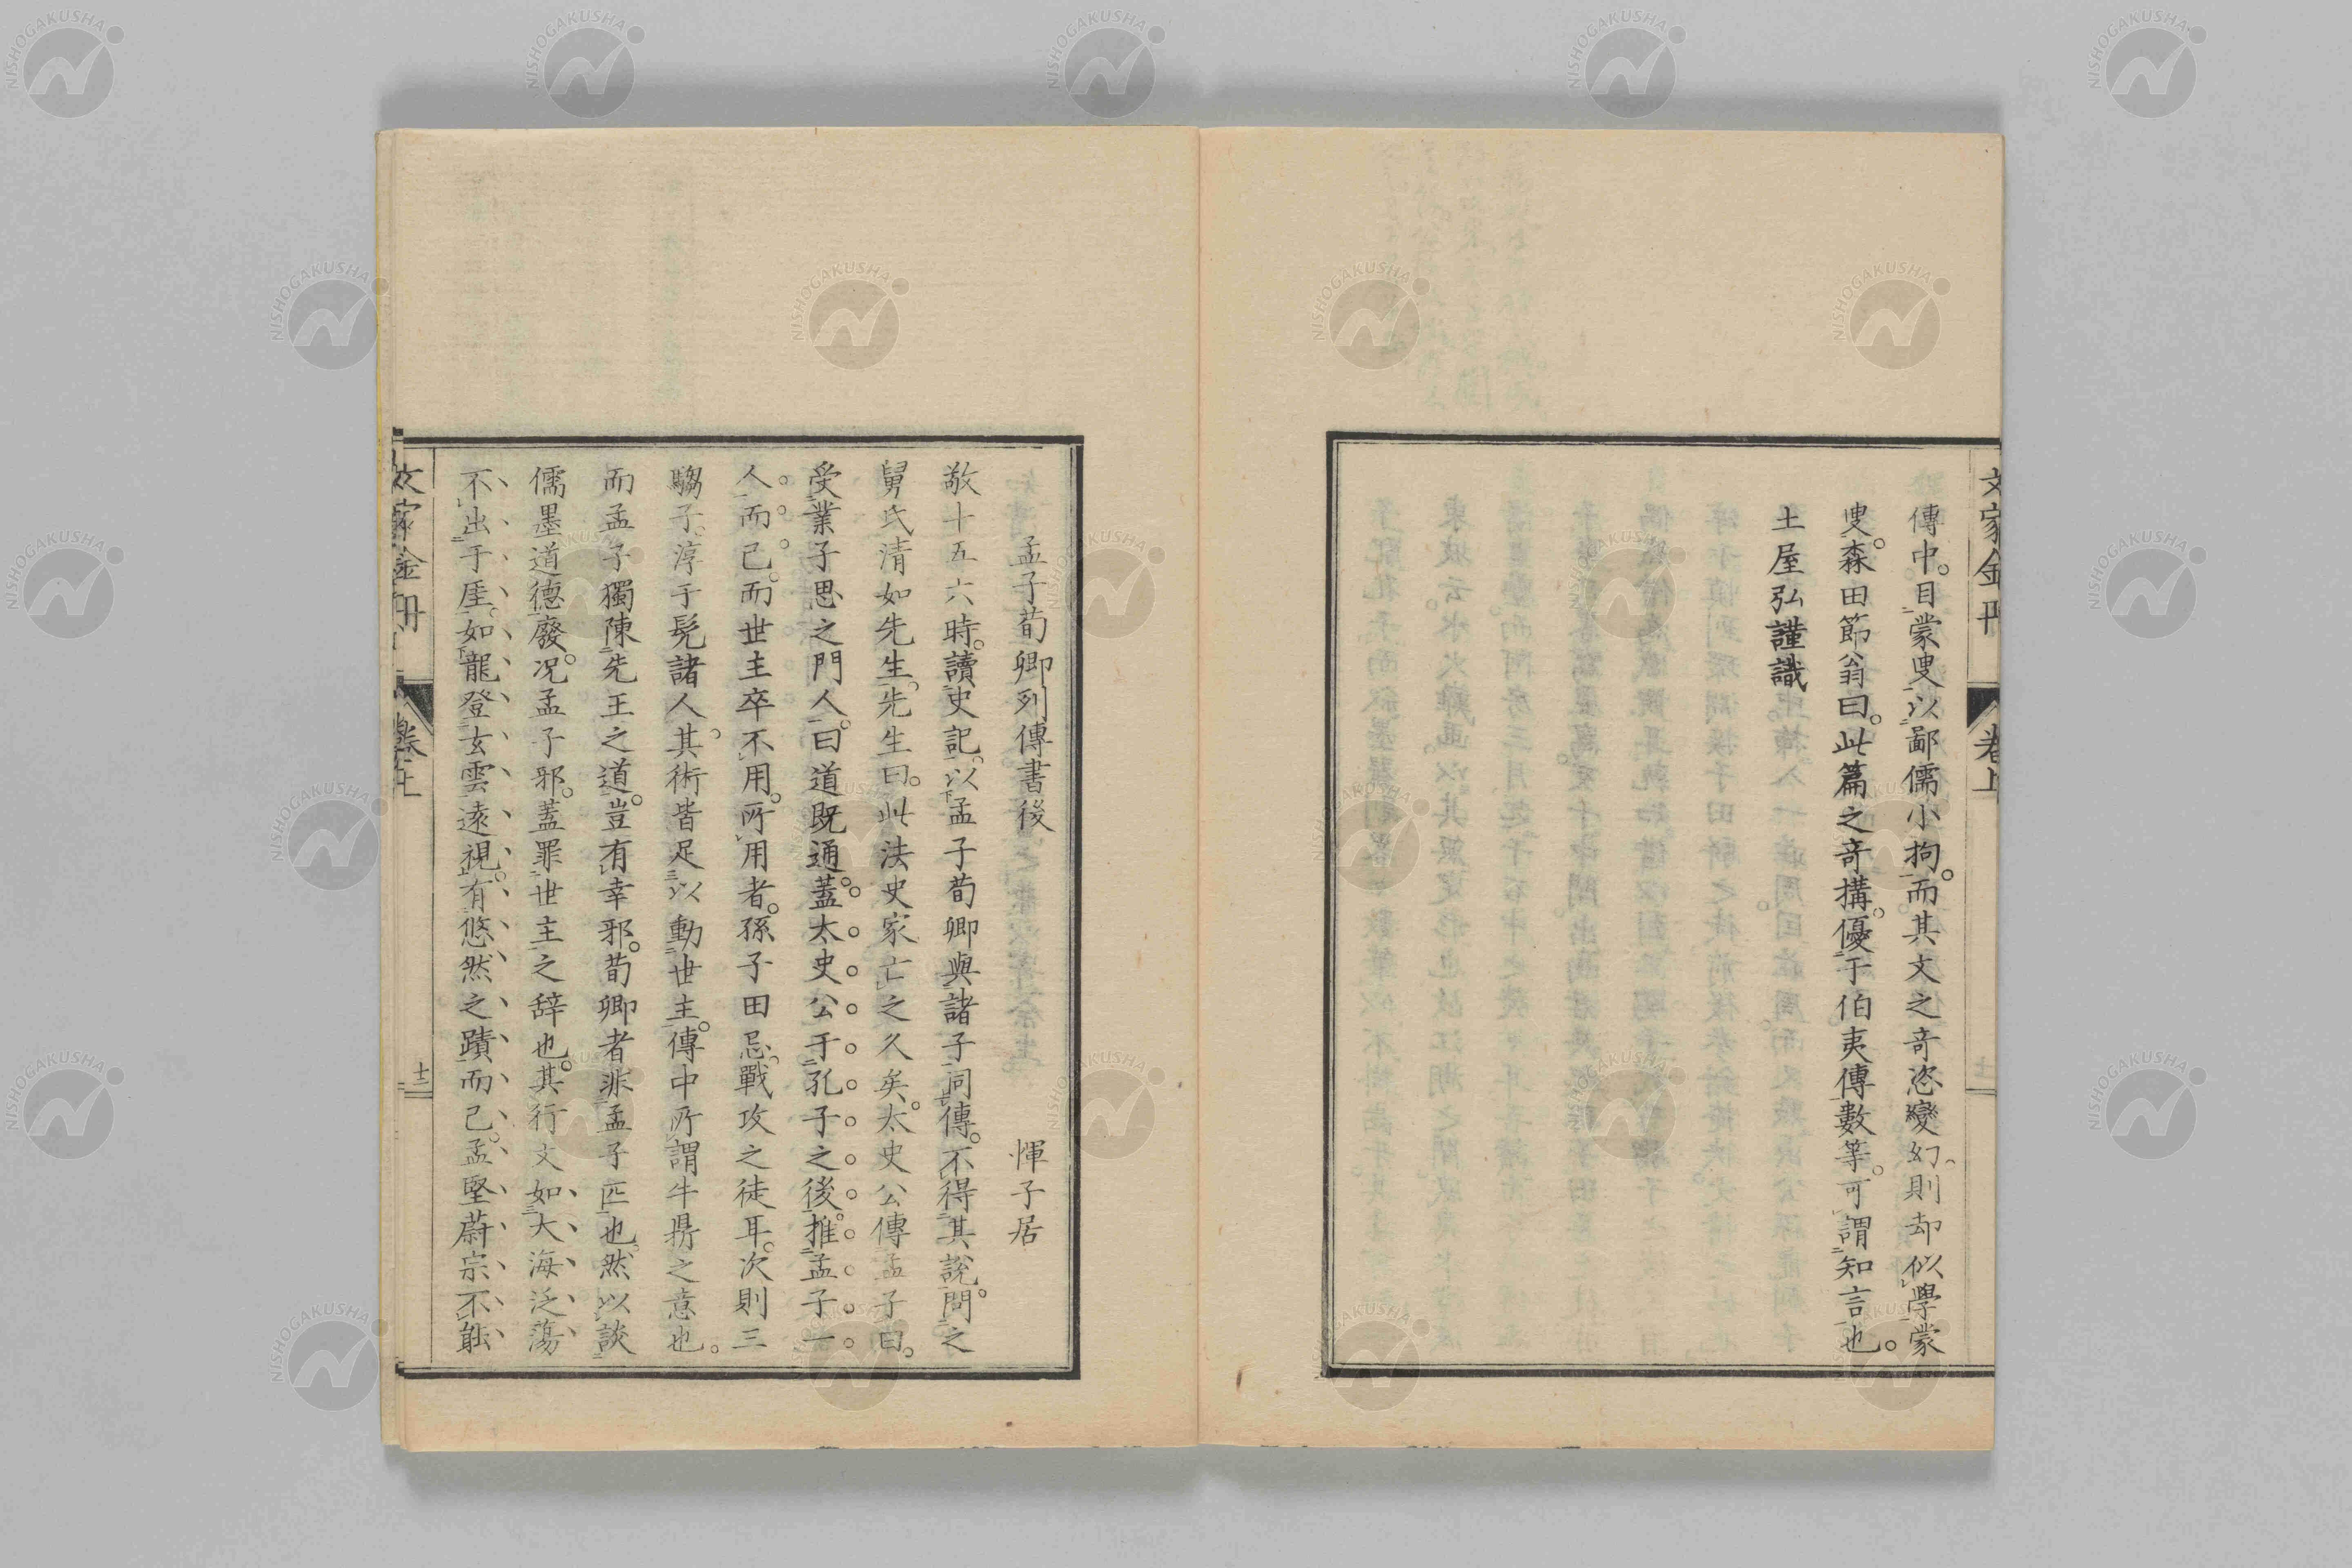 文家金丹
卷上
傳中。目蒙叟以鄙儒小拘。而其文之奇恣變幻、則却似學蒙
叟。森田節翁曰。此篇之奇搆。優于伯夷傳數等。可謂知言也。
土屋弘謹識
孟子荀卿列傳書後 惲子居
敬十五六時。讀史記。以孟子荀卿與諸子同傳。不得其說。問之
舅氏清如先生。先生曰。此法史家亡之久矣。太史公傳孟子曰。
受業子思之門人。曰道既通。蓋太史公于孔子之後。推孟子一
人。而已。而世主卒不用。所用者。孫子田忌。戰攻之徒耳。次則三
騶子。淳于髡諸人。其術皆足以動世主。傳中所謂牛鼎之意也。
而孟子獨陳先王之道。豈有幸邪。荀卿者非孟子匹也。然以談
儒墨道德廢。况孟子邪。蓋罪世主之辞也。其行文如大海泛蕩
不出于厓。如龍登玄雲遠視。有悠然之蹟而已。孟堅蔚宗不能
文家金丹
卷上
十二
NISHOGAKUSHA